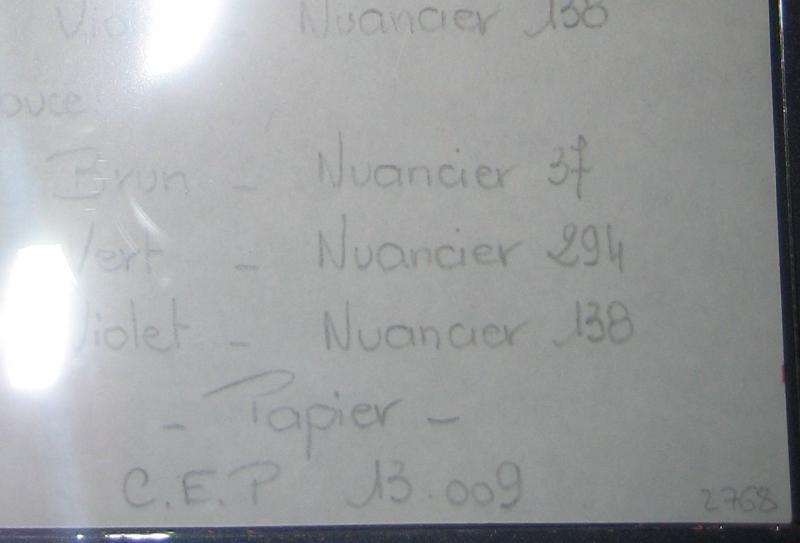 Nuancier 138
Brun - Nuancier 37
Vert - Nuancier 294
Violet - Nuancier 138
- Papier -
C.E.P 13.009
2768